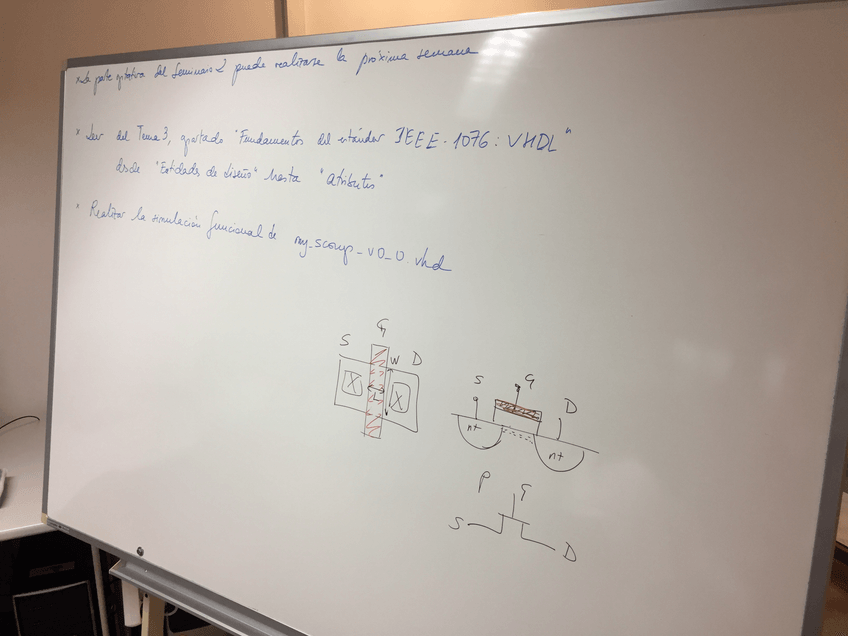 * La parte optativa del Seminario 2 puede realizarse la próxima semana
* Leer del Tema 3, apartado "Fundamentos del estándar IEEE-1076: VHDL"
desde "Entidades de diseño" hasta "atributos"
* Realizar la simulación funcional de my_scomp_v0_0.vhd
G
S
W D
X
L
X
S
G
D
n+
n+
P
G
S
D